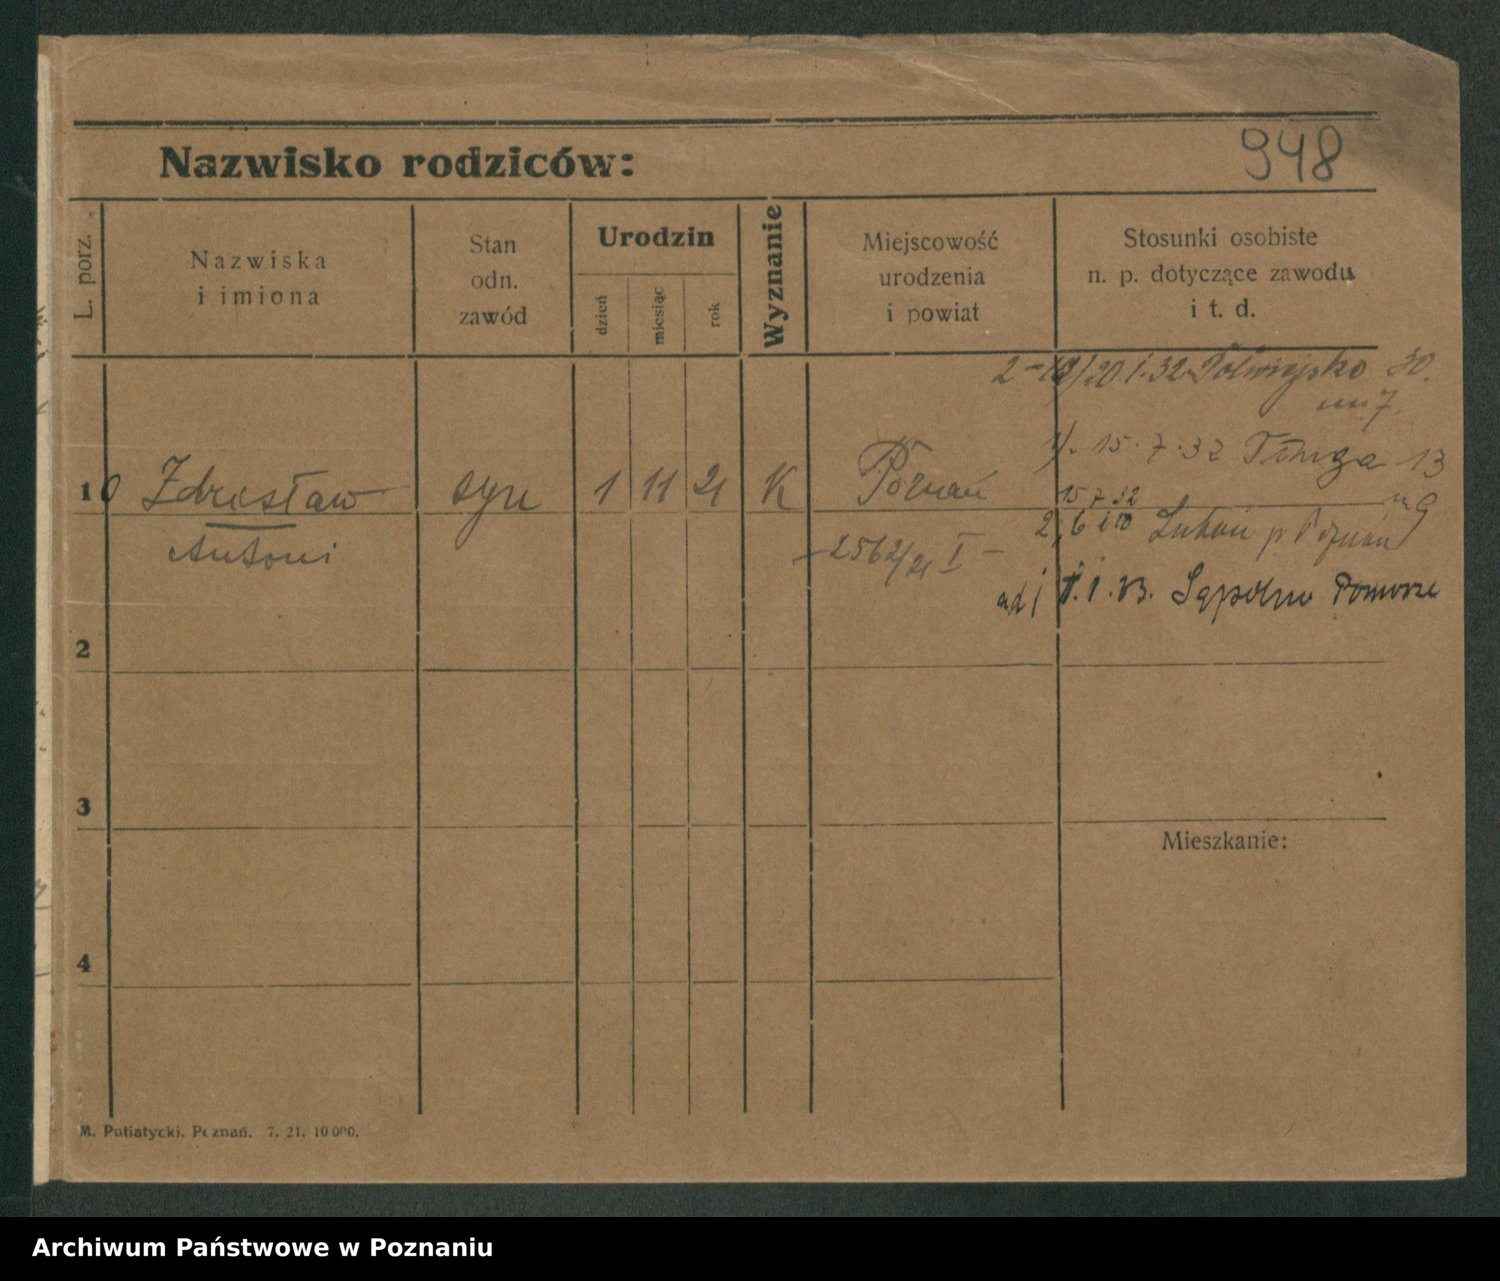 948
Nazwisko rodziców:
L. porz.
Nazwiska
i imiona
Stan
odn.
zawód
Urodzin
dzień
miesiąc
rok
Wyznanie
Miejscowość
urodzenia
i powiat
Stosunki osobiste
n. p. dotyczące zawodu
i t. d.
20.1.32 Półwiejska 30.
m 7.
1/. 15.7.32 13
m 9
10 Zdzisław syn 1 11 21 K Poznań
15 7 32
2, 6 i 10 Luboń p Poznań
Antoni
-2562/21 I-
1.1. Sępólno Pomorze
2
3
Mieszkanie:
4
M. Putiatycki. Poznań. 7. 21. 10000.
Archiwum Państwowe w Poznaniu